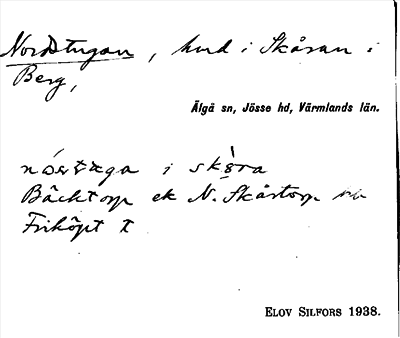 Nordstugan, hmd i Skåran i
Berg,
Älgå sn, Jösse hd, Värmlands län.
i skå̀ra
Bäcktorp ek N. Skårtorp
Friköpt t
ELOV SILFORS 1938.